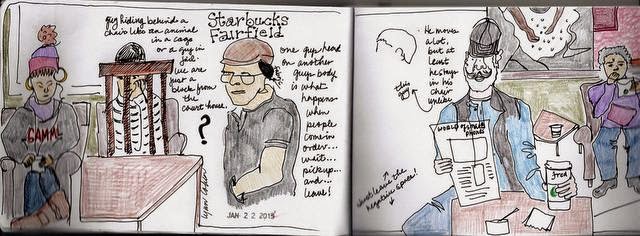 guy hiding behind a
chair like an animal
in a cage
or a guy in
jail.
we are
just a
block from
the
court house.
GAMML
?
Starbucks
Fairfield
one guys head
on another
guys body
is what
happens
when
people
come in
order...
wait...
pickup...
and...
leave!
JAN 22 2015
this
guy
He moves
a lot,
but at
least
he stays
in his
chair
unlike
WORLD of
fred
leave the
negative space!